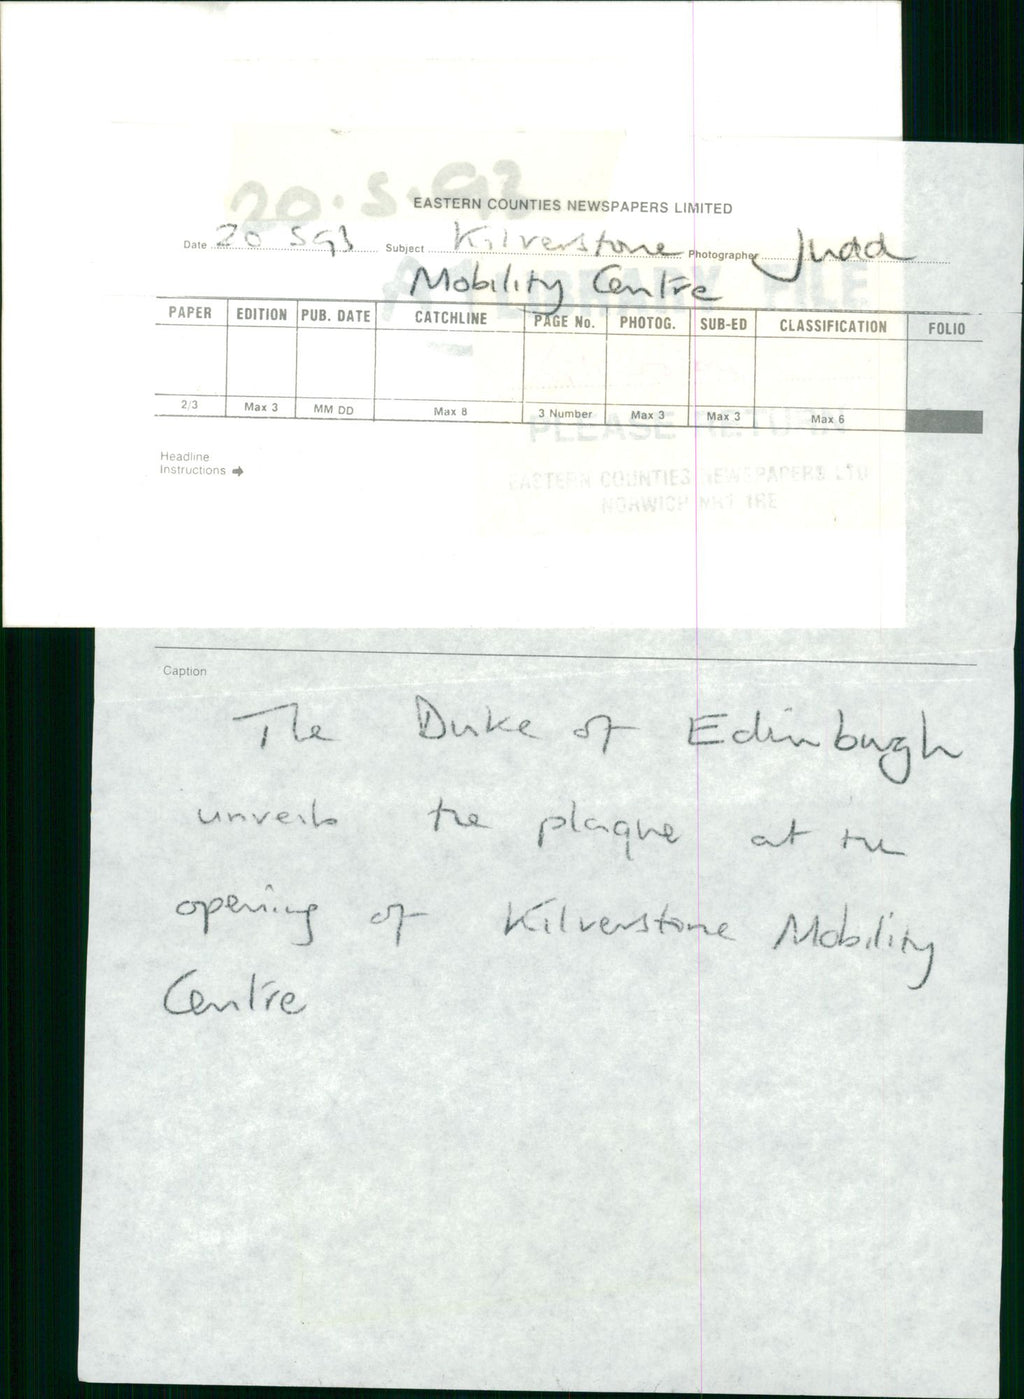 20.5.93
EASTERN COUNTIES NEWSPAPERS LIMITED
Date 20 5 93 Subject Kilverstone Photographer Judd
Mobility Centre
LIBRARY FILE
PAPER EDITION PUB. DATE CATCHLINE PAGE No. PHOTOG. SUB-ED CLASSIFICATION FOLIO
2/3 Max 3 MM DD Max 8 3 Number Max 3 Max 3 Max 6
PLEASE RETURN
Headline
Instructions
EASTERN COUNTIES NEWSPAPERS LTD
NORWICH NR1 1RE
Caption
The Duke of Edinburgh
unveils the plaque at the
opening of Kilverstone Mobility
Centre